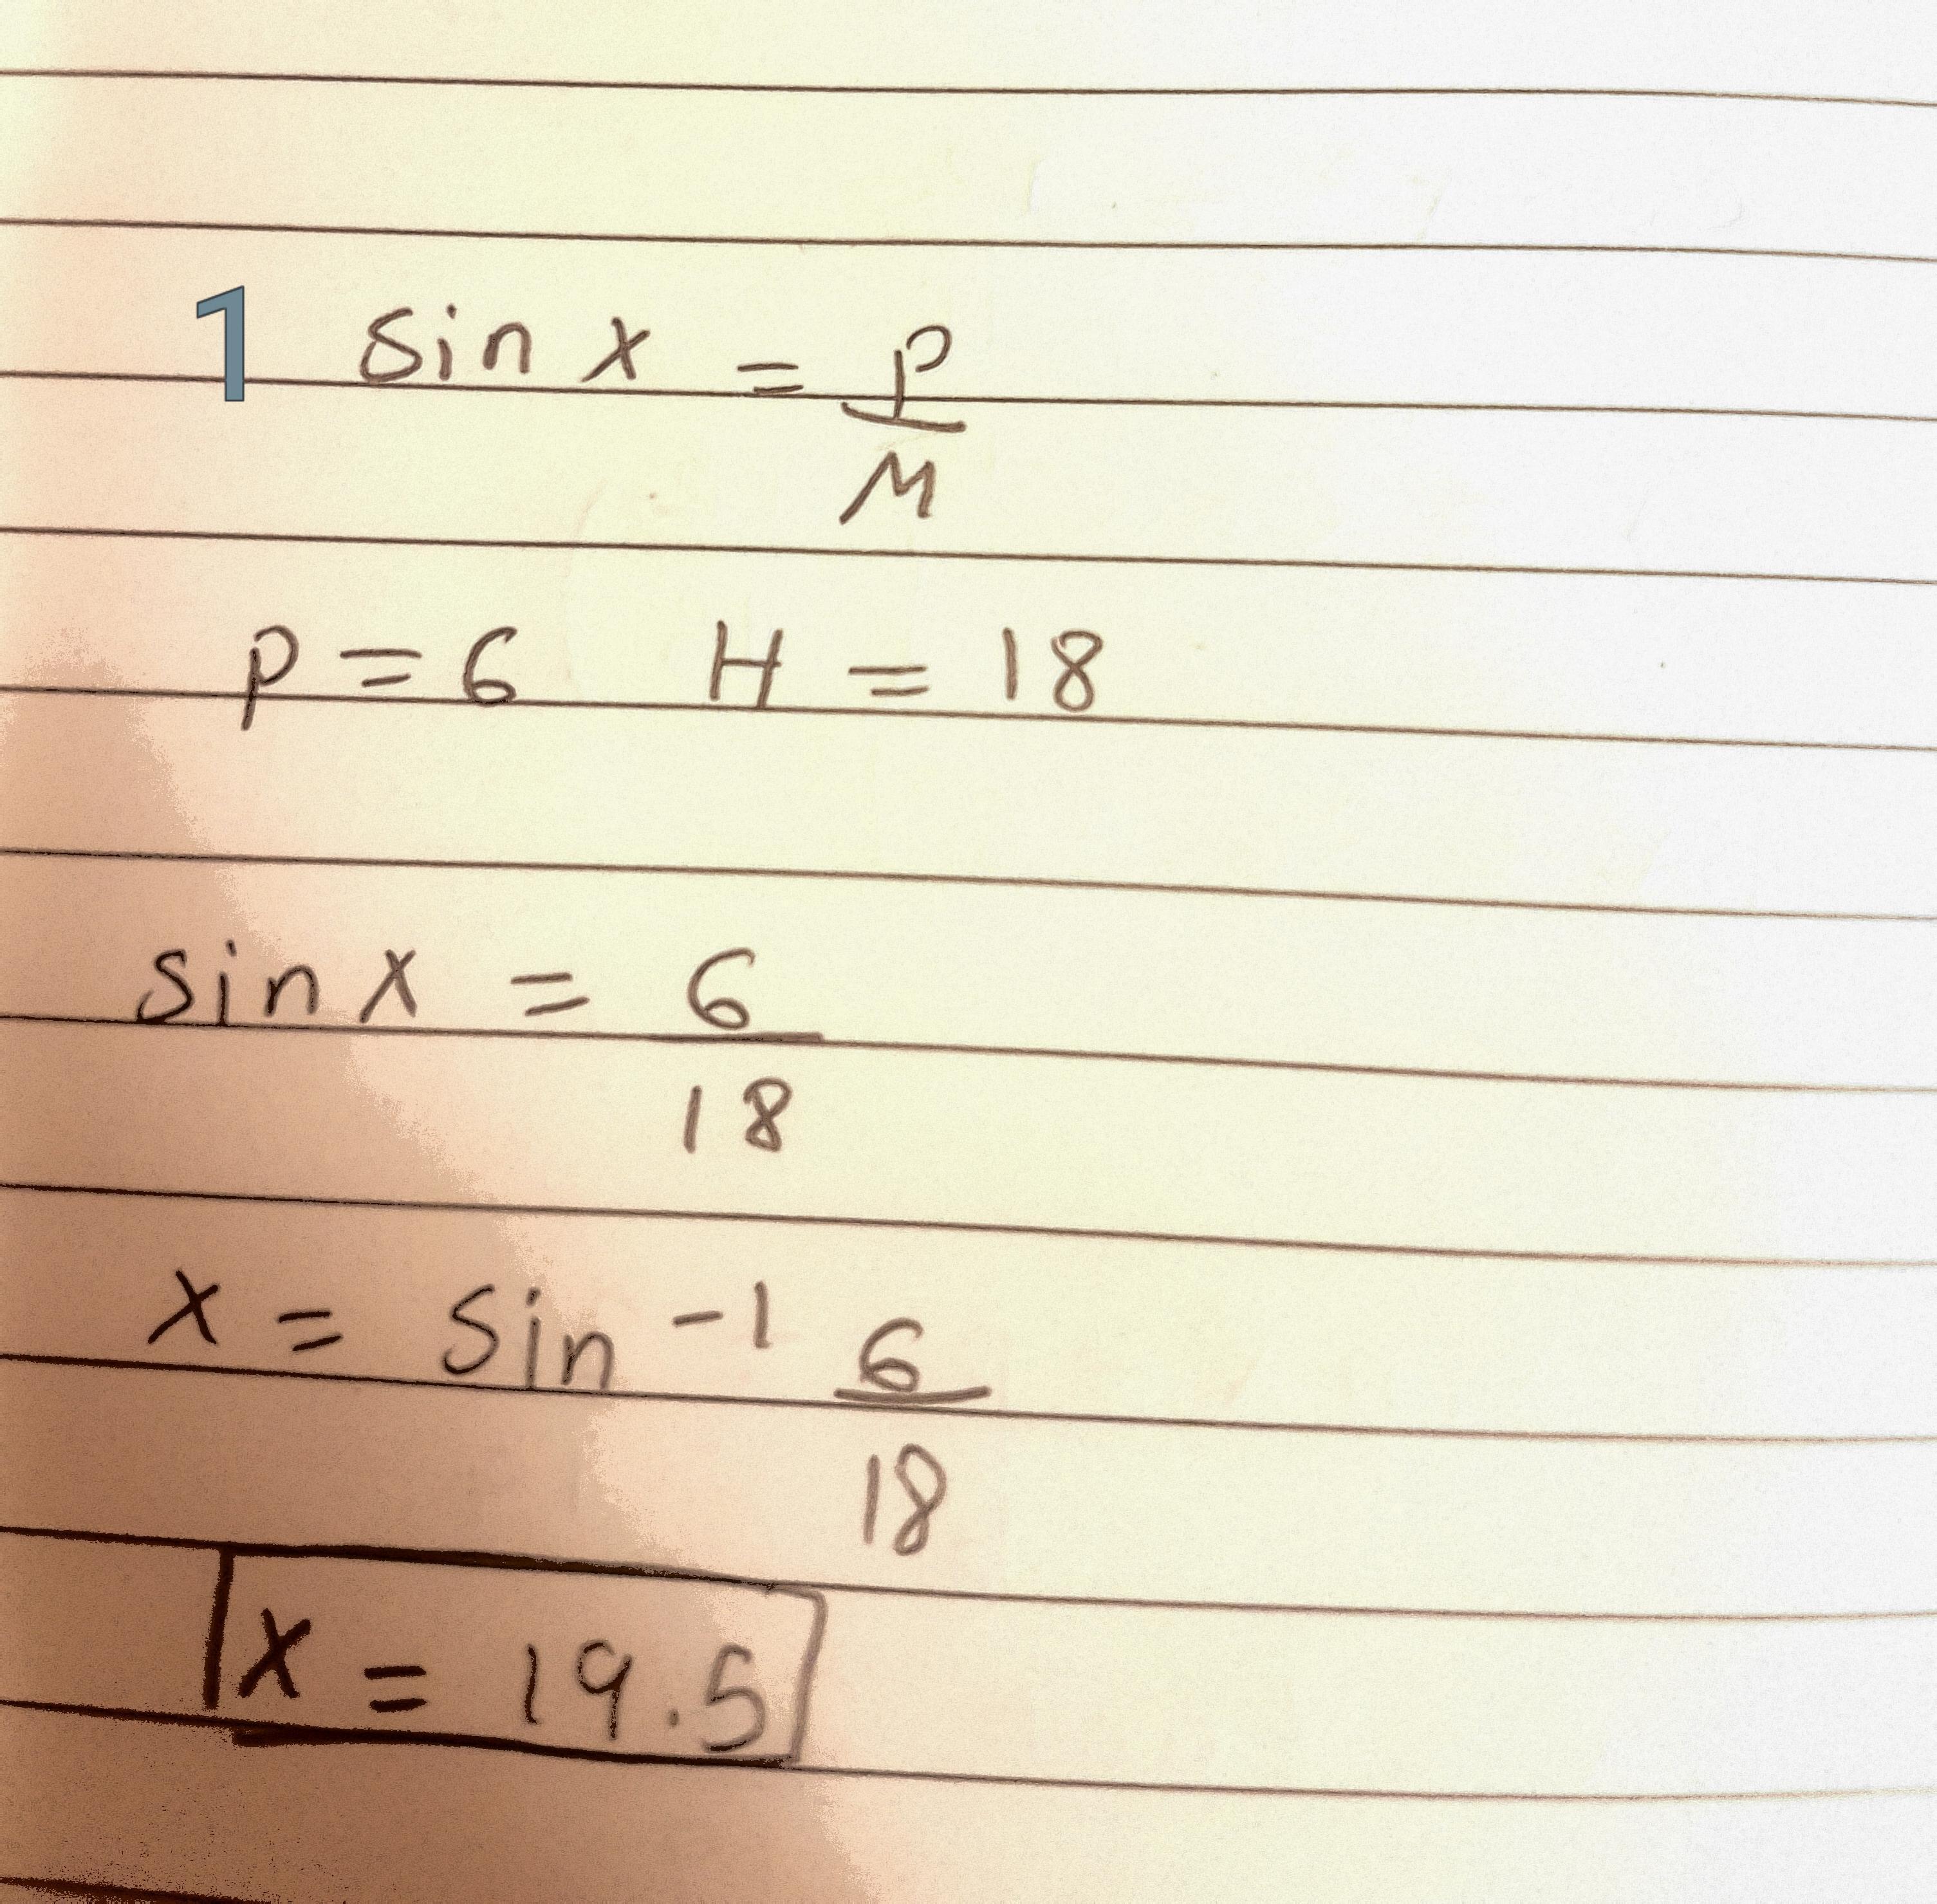 1 sin x = P/M
P = 6 H = 18
sin x = 6/18
x = sin -1 6/18
x = 19.5